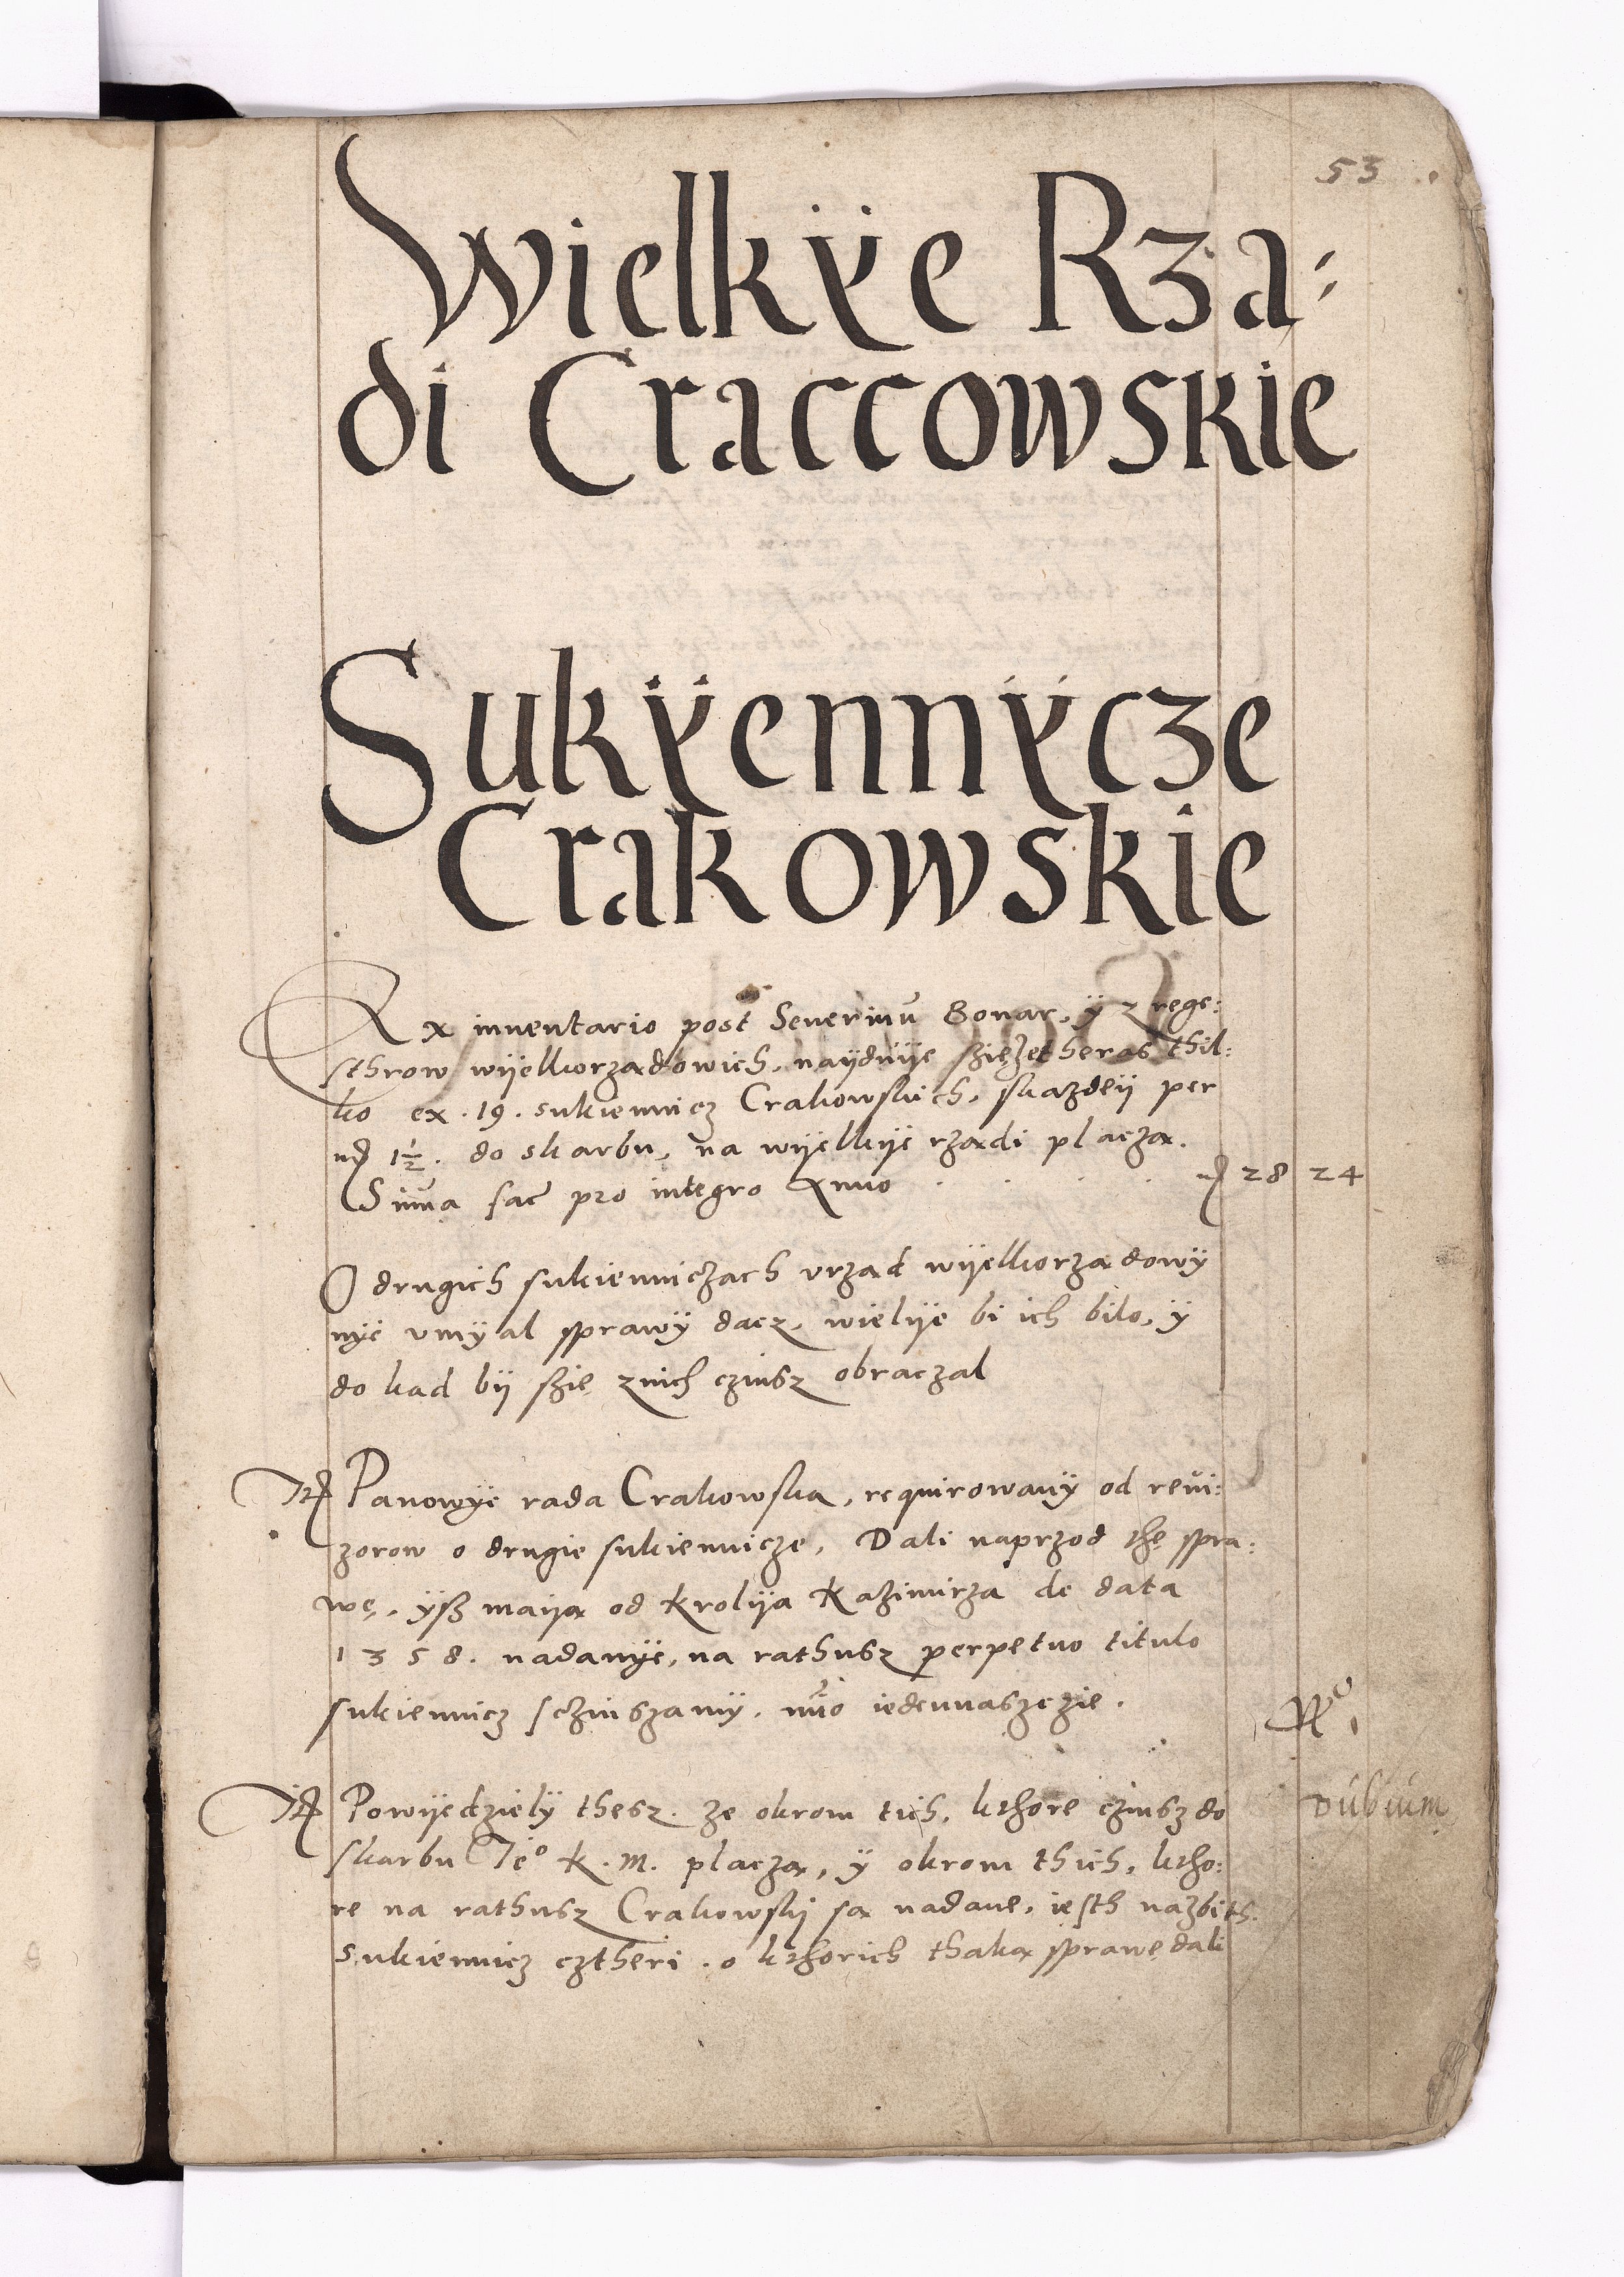 53
Wielkÿe Rza:
di Craccowskie
Sukÿennÿcze
Crakowskie
Ex inuentario post Seuerinū Bonar, ÿ z rege:
sthrow wÿelkorządowich, naÿduÿe szię żetheras thil:
ko ex . 19 . sukiennicz Crakowskich, skazdeÿ per
mr̄ 1½ . do skarbu, na wÿelkÿe rządi płaczą.
Sūma fac̄ pro integro Anno . . . . mr̄ 28 24
O drugich sukienniczach vrząd wÿelkorządowÿ
nÿe vmÿal sprawÿ dacz, wielÿe bi ich bilo, ÿ
do kąd bÿ szię znich czinsz obraczal
It̄ Panowÿe rada Crakowska, requirowanÿ od reui:
zorow o drugie sukiennicze, Dali naprzod thę spra:
wę, ÿsz maiją od Krolÿa Kazimirza de data
1358. nadanÿe, na rathusz perpetuo titulo
sukiennicz sczinszamÿ, nūo iedennasczie .
No 1
It̄ Powÿedzielÿ thesz. że okrom tich, kthore czinsz do
dubium
skarbu Jeo K. M. płaczą, ÿ okrom thich, ktho:
re na rathusz Crakowskÿ są nadane, iesth nazbith
sukiennicz cztheri . o kthorich thaką sprawę dali